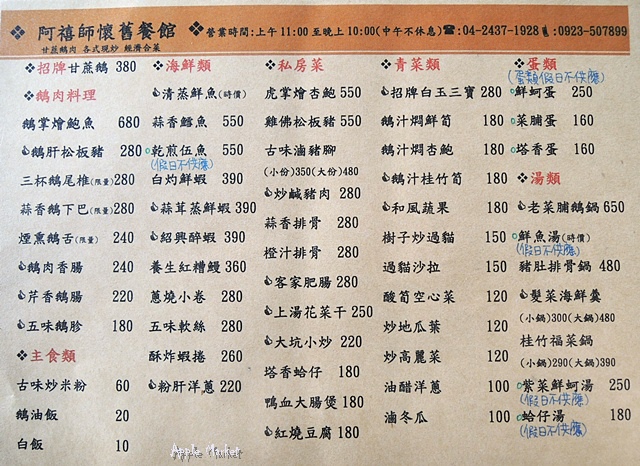 ❖ 阿禧師懷舊餐館
甘蔗鵝肉 各式現炒 經濟合菜
❖營業時間:上午11:00至晚上10:00(中午不休息)☎:04-2437-1928 0923-507899
❖招牌甘蔗鵝 380
❖鵝肉料理
鵝掌燴鮑魚 680
鵝肝松板豬 280
三杯鵝尾椎(限量)280
蒜香鵝下巴(限量)280
煙熏鵝舌(限量) 240
鵝肉香腸 240
芹香鵝腸 220
五味鵝胗 180
❖主食類
古味炒米粉 60
鵝油飯 20
白飯 10
❖海鮮類
清蒸鮮魚(時價)
蒜香鱈魚 550
乾煎伍魚 550
(假日不供應)
白灼鮮蝦 390
蒜茸蒸鮮蝦 390
紹興醉蝦 390
養生紅糟鰻 360
蔥燒小卷 280
五味軟絲 280
酥炸蝦捲 260
粉肝洋蔥 220
❖私房菜
虎掌燴杏鮑 550
雞佛松板豬 550
古味滷豬腳
(小份)350(大份)480
炒鹹豬肉 280
蒜香排骨 280
橙汁排骨 280
客家肥腸 280
上湯花菜干 250
大坑小炒 220
塔香蛤仔 180
鴨血大腸煲 180
紅燒豆腐 180
❖青菜類
招牌白玉三寶 280
鵝汁燜鮮筍 180
鵝汁燜杏鮑 180
鵝汁桂竹筍 180
和風蔬果 180
樹子炒過貓 150
過貓沙拉 150
酸筍空心菜 120
炒地瓜葉 120
炒高麗菜 120
油醋洋蔥 100
滷冬瓜 100
❖蛋類
(蛋類假日不供應)
鮮蚵蛋 250
菜脯蛋 160
塔香蛋 160
❖湯類
老菜脯鵝鍋 650
鮮魚湯(時價)
(假日不供應)
豬肚排骨鍋 480
髮菜海鮮羹
(小鍋)300(大鍋)480
桂竹福菜鍋
(小鍋)290(大鍋)390
紫菜鮮蚵湯 250
(假日不供應)
蛤仔湯 180
(假日不供應)
Apple Market